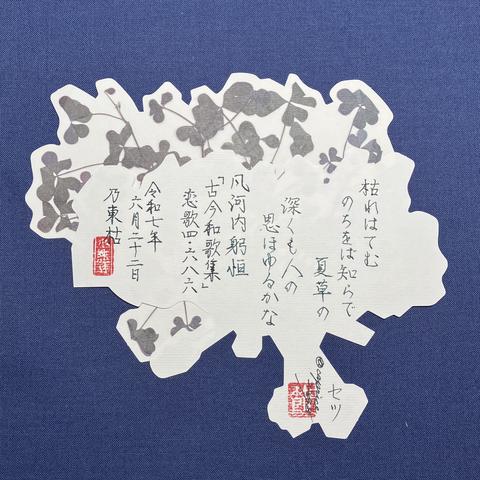 枯れはてむ
のちをば知らで
夏草の
深くも人の
思ほゆるかな
凡河内躬恒
「古今和歌集」
恋歌四・六八六
令和七年
六月二十二日
乃東枯
セツ